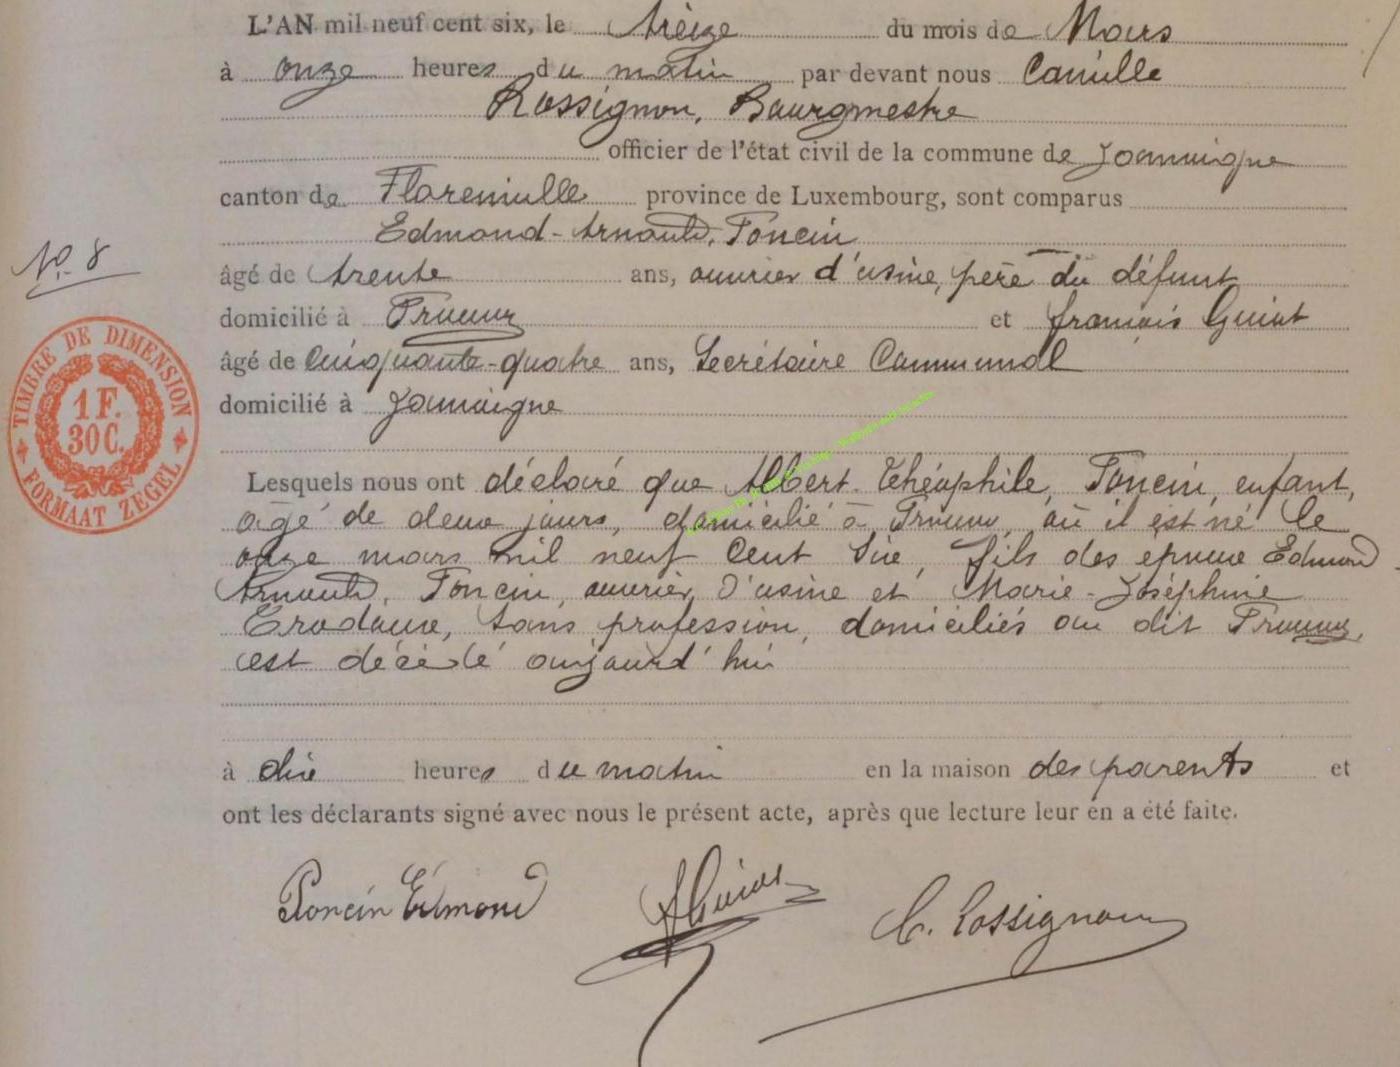 L'AN mil neuf cent six, le treize du mois de Mars
à onze heures du matin par devant nous Camille
Rossignon, Bourgmestre
officier de l'état civil de la commune de Jamoigne
canton de Florenville province de Luxembourg, sont comparus
Edmond-Arnould, Poncin
Nº 8
âgé de trente ans, ouvrier d'usine, père du défunt
domicilié à Prouvy et françois Guiot
âgé de Cinquante-quatre ans, Secrétaire Communal
domicilié à Jamoigne
TIMBRE DE DIMENSION
1 F.
30 C.
FORMAAT ZEGEL
Lesquels nous ont déclaré que Albert-Théophile, Poncin, enfant,
âgé de deux jours, domicilié à Prouvy, où il est né le
onze mars mil neuf Cent Six, fils des époux Edmond
Arnould, Poncin, ouvrier d'usine et Marie-Joséphine
sans profession, domiciliés au dit Prouvy,
est décédé aujourd'hui
à dix heures du matin en la maison des parents et
ont les déclarants signé avec nous le présent acte, après que lecture leur en a été faite.
Poncin Edmond
F Guiot
C. Rossignon